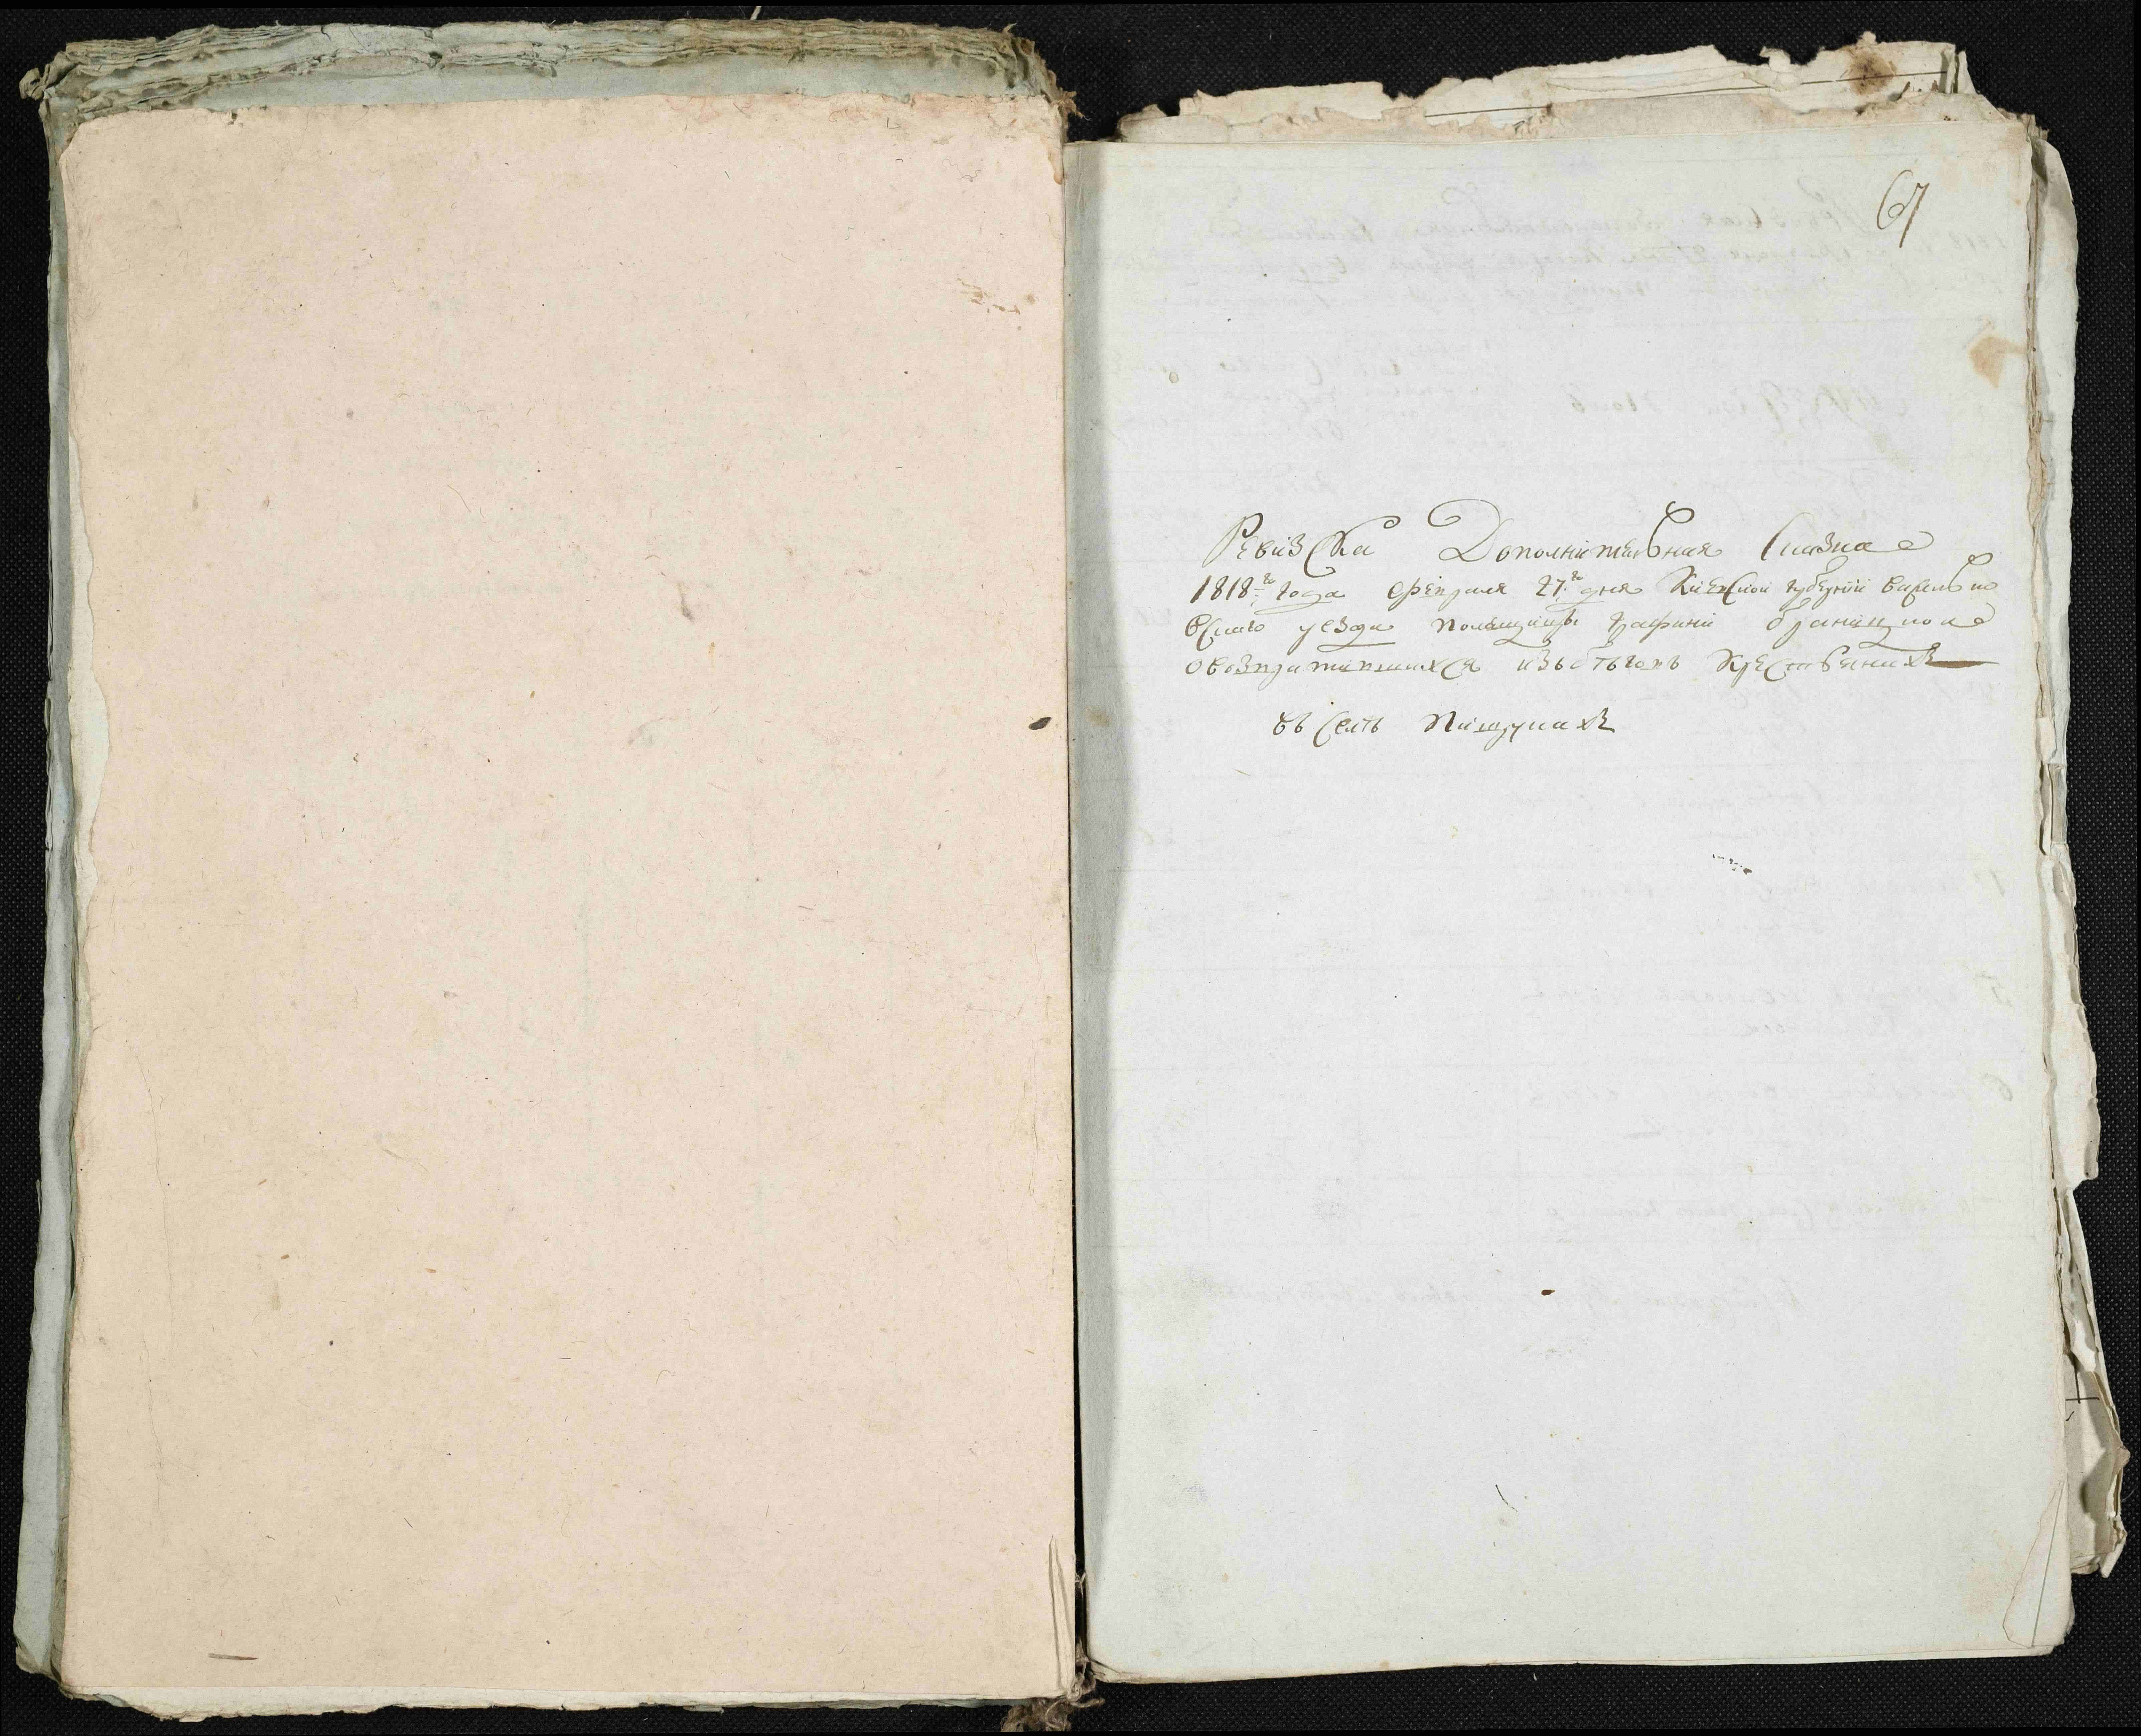 67
Ревизска Дополнительная Сказка
1818го года февраля 27го дня Киевской губернии василько
вскаго уезда помещицы графини браницкой
о возвратившихся изъ бѣговъ Крестьянахъ
въ Селѣ Пищикахъ